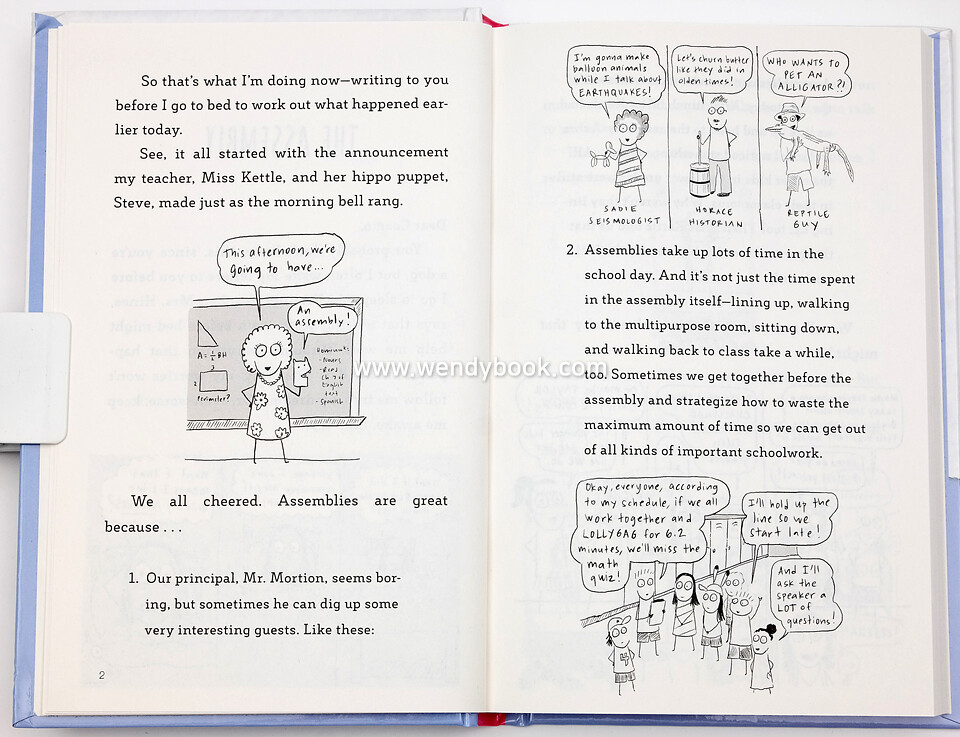 So that's what I'm doing now—writing to you
before I go to bed to work out what happened ear-
lier today.
See, it all started with the announcement
my teacher, Miss Kettle, and her hippo puppet,
Steve, made just as the morning bell rang.
This afternoon, we're
going to have...
An
assembly!
A = ½ BH
3
2
Perimeter?
Homework:
- Nouns
- Read
Ch 7 of
English
text
- Spanish
We all cheered. Assemblies are great
because . . .
1. Our principal, Mr. Mortion, seems bor-
ing, but sometimes he can dig up some
very interesting guests. Like these:
2
I'm gonna make
balloon animals
while I talk about
EARTHQUAKES!
SADIE
SEISMOLOGIST
Let's churn butter
like they did in
olden times!
HORACE
HISTORIAN
WHO WANTS TO
PET AN
ALLIGATOR?!
REPTILE
GUY
2. Assemblies take up lots of time in the
school day. And it's not just the time spent
in the assembly itself—lining up, walking
to the multipurpose room, sitting down,
and walking back to class take a while,
too. Sometimes we get together before the
assembly and strategize how to waste the
maximum amount of time so we can get out
of all kinds of important schoolwork.
Okay, everyone, according
to my schedule, if we all
work together and
LOLLYGAG for 6.2
minutes, we'll miss the
math
quiz!
I'll hold up the
line so we
start late!
And I'll
ask the
speaker a
LOT of
questions!
www.wendybook.com